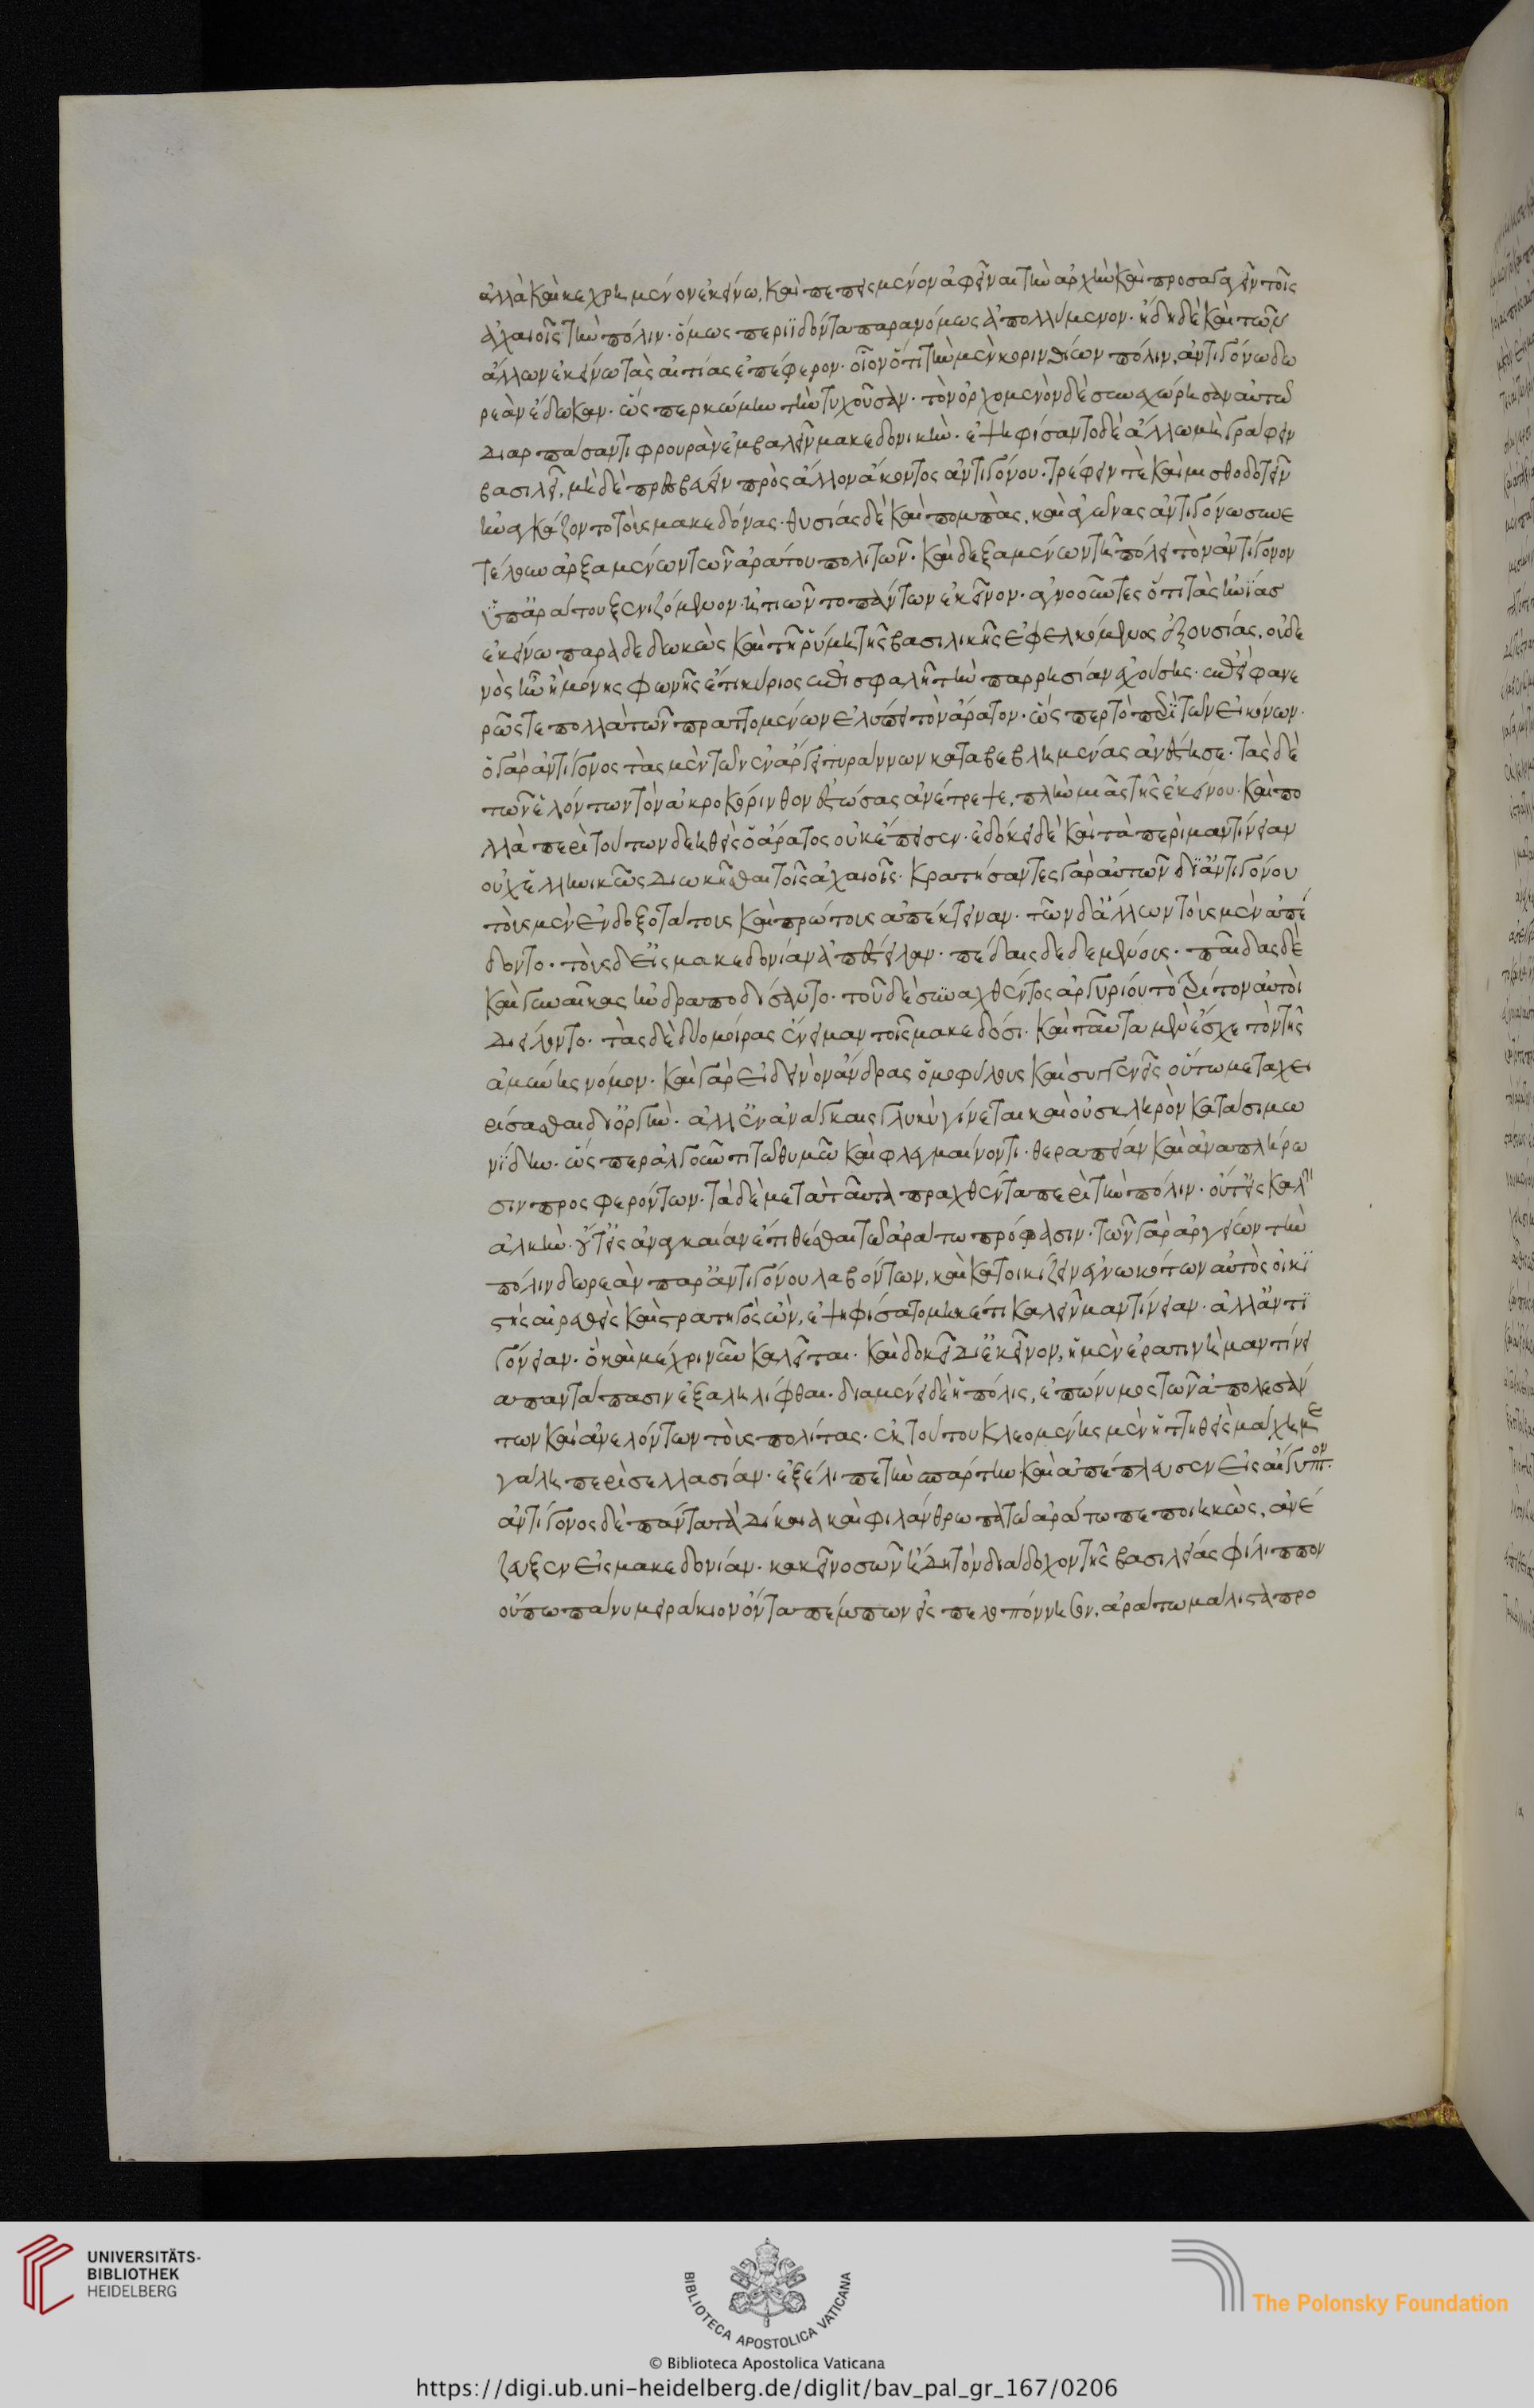 ἀλλὰ καὶ κεχρημένον ἐκείνω, καὶ πεπεισμένον ἀφεῖναι τὴν ἀρχὴν καὶ προσαγαγεῖν τοῖς
ἀχαιοῖς τὴν πόλιν· ὅμως περιϊδόντα παρανόμως ἀπολλύμενον· ἤδη δὲ καὶ τῶν
ἄλλων ἐκείνω τὰς αἰτίας ἐπέφερον· οἷον ὅτι τὴν μὲν κορινθίων πόλιν, ἀντιγόνω δω
ρεὰν ἔδωκαν· ὥσπερ κώμην τὴν τυχοῦσαν· τὸν ὀρχομενὸν δὲ συνεχώρησαν αὐτῶ
διαρπάσαντι φρουρὰν ἐμβαλεῖν μακεδονικήν· ἐψηφίσαντο δὲ ἄλλω μὴ γράφειν
βασιλεῖ, μὴ δὲ πρεσβεύειν πρὸς ἄλλον ἄκοντος ἀντιγόνου· τρέφειν τὲ καὶ μισθοδοτεῖν
ἠναγκάζοντο τοὺς μακεδόνας· θυσίας δὲ καὶ πομπὰς, καὶ ἀγῶνας ἀντιγόνω συνε
τέλουν ἀρξαμένων τῶν ἀράτου πολιτῶν· καὶ δεξαμένων τῆ πόλει τὸν ἀντίγονον
ὑπ' ἀράτου ξενιζόμενον· ἠτιῶντο πάντων ἐκεῖνον· ἀγνοοῦντες ὅτι τὰς ἡνίας
ἐκείνω παραδεδωκὼς καὶ τῆ ῥύμη τῆς βασιλικῆς ἐφελκόμενος ἐξουσίας, οὐδε
νὸς ἦν ἢ μόνης φωνῆς ἐπικύριος ἔτι σφαλερὰν τὴν παρρησίαν ἐχούσης· ἐπεὶ φανε
ρῶς τε πολλὰ τῶν πραττομένων ἐλύπει τὸν ἄρατον· ὥσπερ τὸ περὶ τῶν εἰκόνων·
ὁ γὰρ ἀντίγονος τὰς μὲν τῶν ἐν ἄργει τυράννων καταβεβλημένας ἀνέστησε· τὰς δὲ
τῶν ἑλόντων τὸν ἀκροκόρινθον ἑστώσας ἀνέτρεψε, πλὴν μιᾶς τῆς ἐκείνου· καὶ πο
λλὰ περὶ τούτων δεηθεὶς ὁ ἄρατος οὐκ ἔπεισεν· ἐδόκει δὲ καὶ τὰ περὶ μαντίνειαν
οὐχ ἑλληνικῶς διωκῆσθαι τοῖς ἀχαιοῖς· κρατήσαντες γὰρ αὐτῶν δι' ἀντιγόνου
τοὺς μὲν ἐνδοξοτάτους καὶ πρώτους ἀπέκτειναν· τῶν δ' ἄλλων τοὺς μὲν ἀπέ
δοντο· τοὺς δ' εἰς μακεδονίαν ἀπέστειλαν· πέδαις δεδεμένους· παῖδας δὲ
καὶ γυναῖκας ἠνδραποδίσαντο· τοῦ δὲ συναχθέντος ἀργυρίου τὸ τρίτον αὐτοὶ
διείλοντο· τὰς δὲ δύο μοίρας ἔνειμαν τοῖς μακεδόσι· καὶ ταῦτα μὲν ἔσχε τὸν τῆς
ἀμύνης νόμον· καὶ γὰρ εἰ δεινὸν ἄνδρας ὁμοφύλους καὶ συγγενεῖς οὕτω μεταχει
ρίσασθαι δι' ὀργήν· ἀλλ' ἐν ἀνάγκαις γλυκὺ γίνεται καὶ οὐ σκληρὸν κατὰ σιμω
νίδην· ὥσπερ ἀλγοῦντι τῶ θυμῶ καὶ φλεγμαίνοντι· θεραπείαν καὶ ἀναπλήρω
σιν προσφερόντων· τὰ δὲ μετὰ ταῦτα πραχθέντα περὶ τὴν πόλιν· οὔτ' εἰς καλ
ὰλκὴν· οὔτ' εἰς ἀναγκαίαν ἐπιθέσθαι τῶ ἀράτω πρόφασιν· τῶν γὰρ ἀργείων τὴν
πόλιν δωρεὰν παρ' ἀντιγόνου λαβόντων, καὶ κατοικίζειν ἐγνωκότων αὐτὸς οἰκϊ
στὴς αἱρεθεὶς καὶ στρατηγὸς ὢν, ἐψηφίσατο μηκέτι καλεῖν μαντίνειαν· ἀλλ' ἀντϊ
γόνειαν· ὃ καὶ μέχρι νῦν καλεῖται· καὶ δοκεῖ δι' ἐκεῖνον, ἡ μὲν ἐρατινὴ μαντίνε
α παντάπασιν ἐξαληλίφθαι· διαμένει δὲ ἡ πόλις, ἐπώνυμος τῶν ἀπολεσάν
των καὶ ἀνελόντων τοὺς πολίτας· ἐκ τούτου κλεομένης μὲν ἡττηθεὶς μάχη με
γάλη περὶ σελλασίαν· ἐξέλιπε τὴν σπάρτην καὶ ἀπέπλευσεν εἰς αἴγυπτον·
ἀντίγονος δὲ πάντα τὰ δίκαια καὶ φιλάνθρωπα τῶ ἀράτω πεποιηκὼς, ἀνέ
ζευξεν εἰς μακεδονίαν· κἀκεῖ νοσῶν ἤδη τὸν διάδοχον τῆς βασιλείας φίλιππον
οὔπω πάνυ μειράκιον ὄντα πέμπων εἰς πελοπόννησον, ἀράτω μάλιστα προ
UNIVERSITÄTS-
BIBLIOTHEK
HEIDELBERG
BIBLIOTECA APOSTOLICA VATICANA
The Polonsky Foundation
© Biblioteca Apostolica Vaticana
https://digi.ub.uni-heidelberg.de/diglit/bav_pal_gr_167/0206